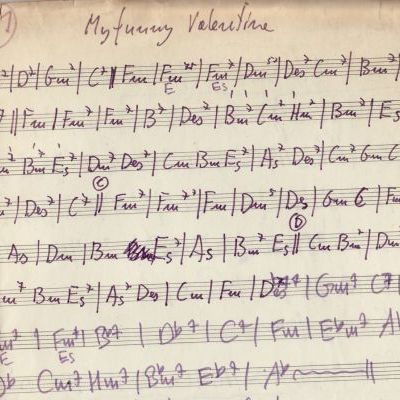 1) My funny Valentine
| D⁷ | Gm⁷ | C⁷ || Fm | Fm⁷ | Fm⁷ | Dm⁵ | Des⁷ Cm⁷ | Bm⁷ |
E Es
|| Fm | Fm⁷ | Fm⁷ | B⁷ | Des⁷ | Bm⁷ Cm⁷ Hm⁷ | Bm⁷ | Es
Bm⁷ Es⁷ | Dm⁷ Des⁷ | Cm Bm Es⁷ | As⁷ Des⁷ | Cm⁷ Gm C
C
| Des⁷ | C⁷ || Fm⁷ | Fm⁷ | Fm | Dm⁵ | Des | Gm C | Fm
D
As | Dm | Bm Es⁷ | As | Bm⁷ Es || Cm Bm⁷ | Dm
m⁷ Bm Es⁷ | As⁷ Des | Cm | Fm | | Gm⁷ C⁷ |
m⁷ | Fm⁷ | B♭⁷ | D♭⁷ | C⁷ | Fm | E♭m⁷ A♭
E Es
D♭ Cm⁷ Hm⁷ | B♭m⁷ E♭⁷ | A♭ ||